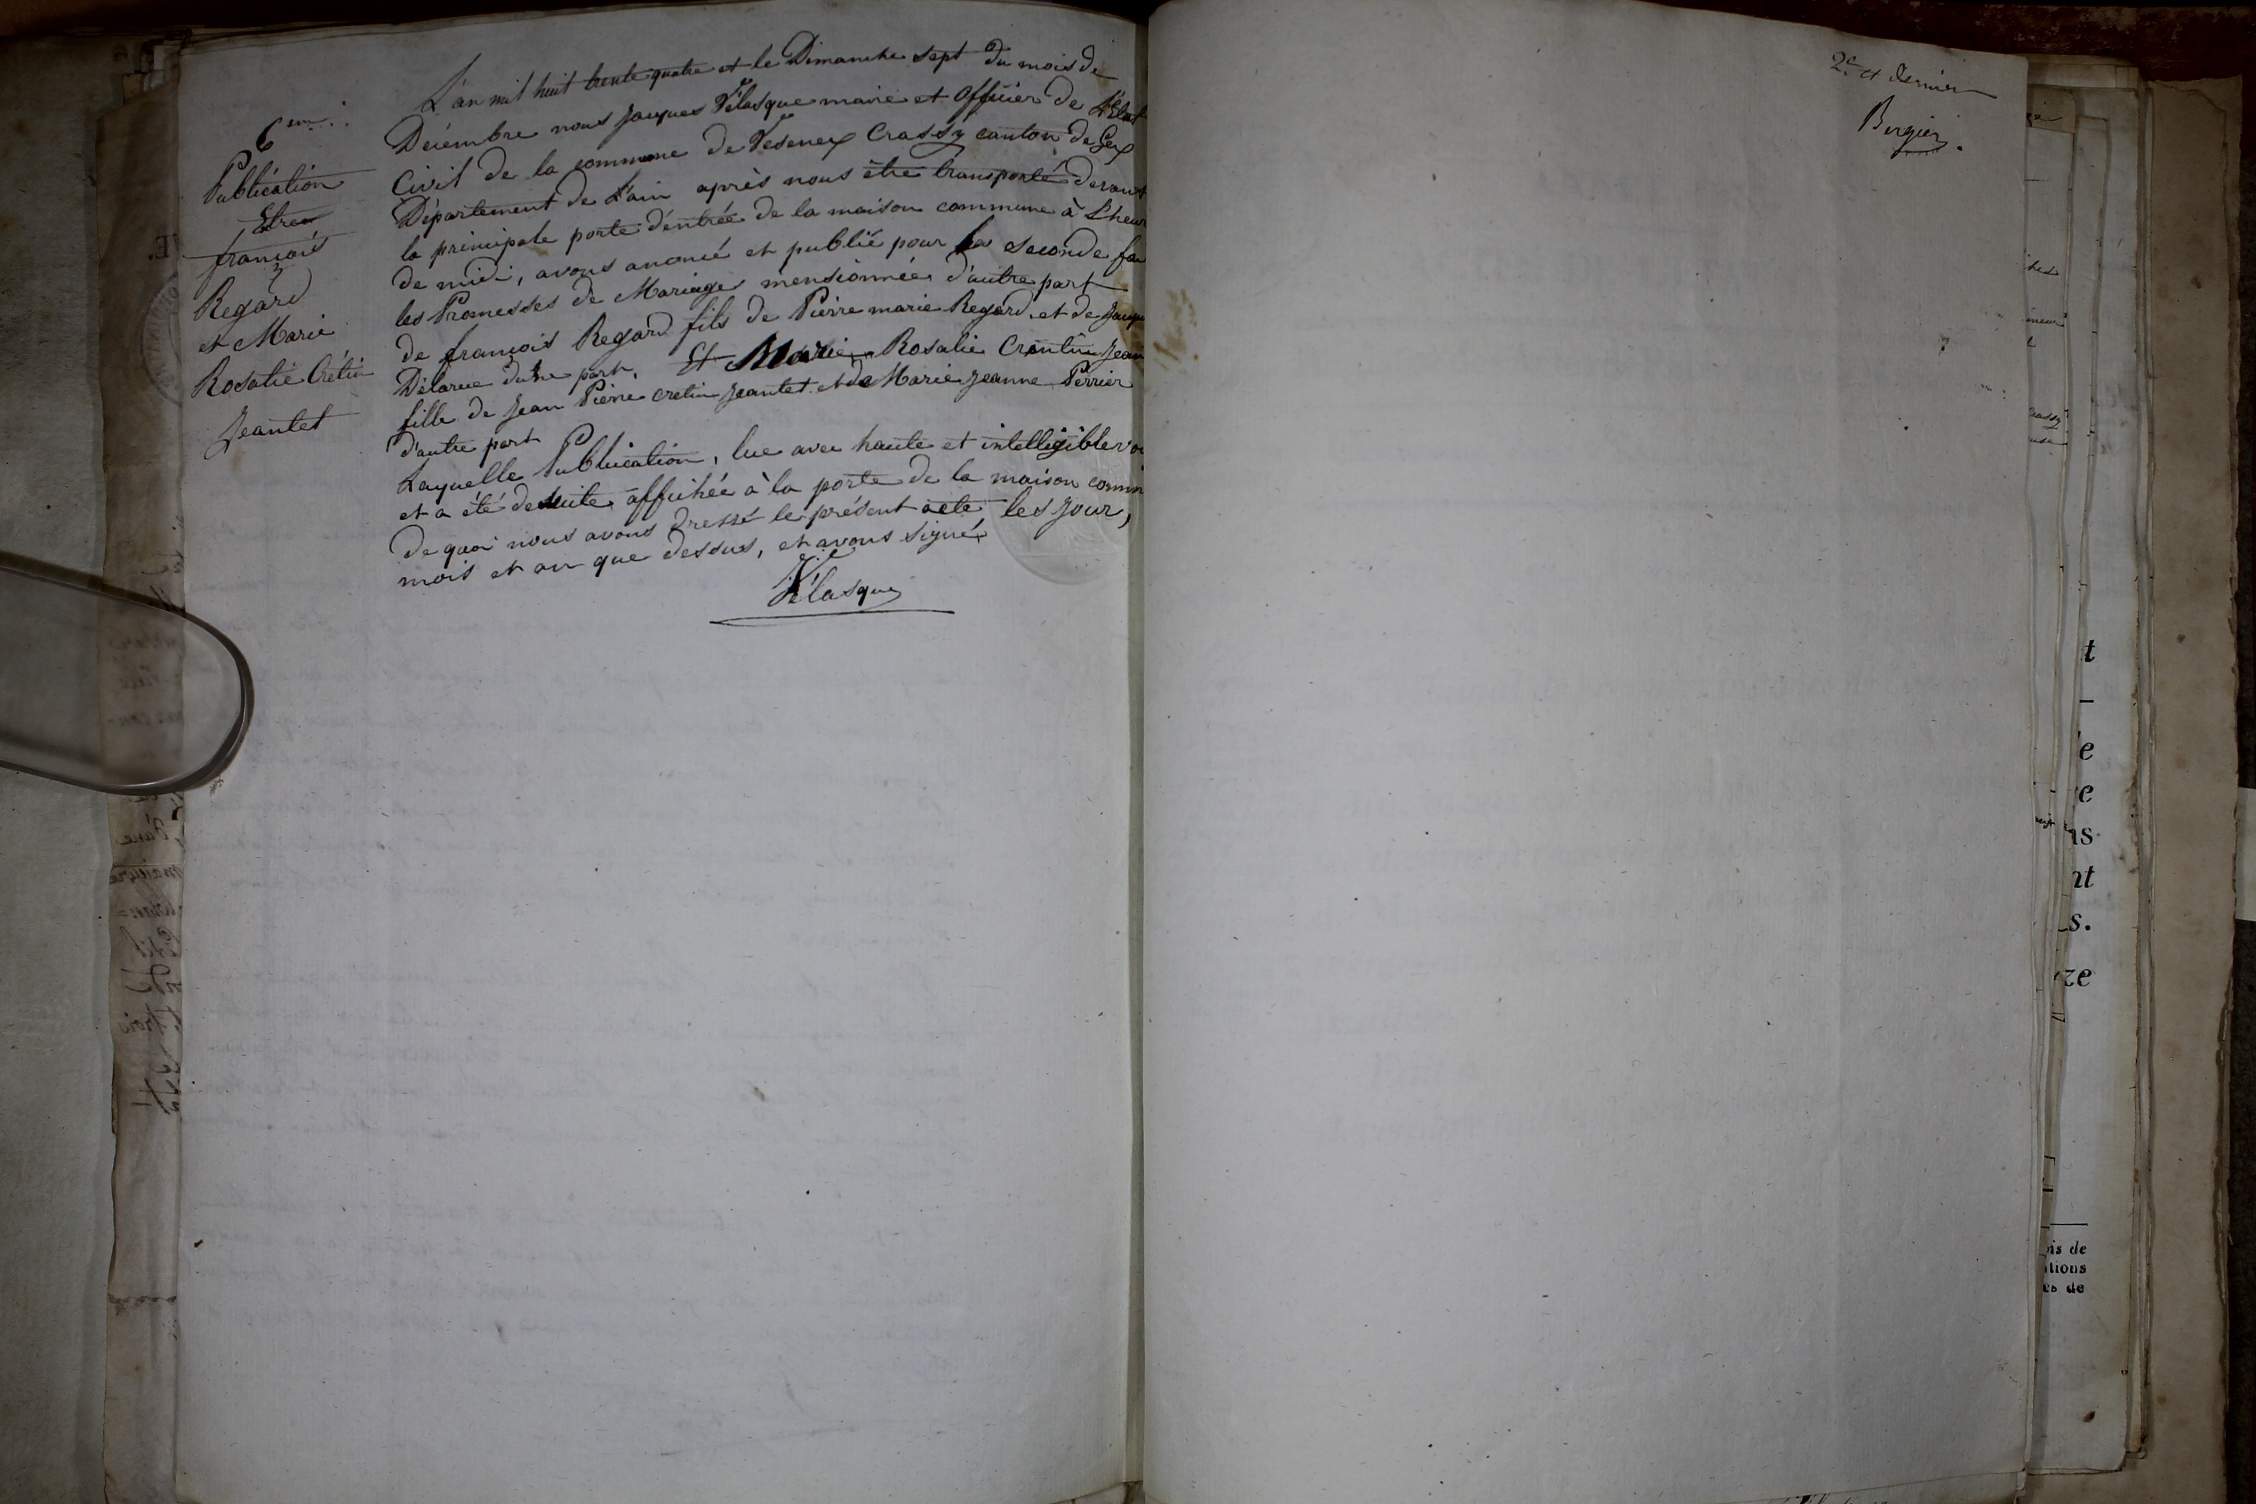 6eme
Publication
Etren
françois
Regard
et Marie
Rosalie Crétin
Jeantet
L'an mil huit trente quatre et le Dimanche sept du mois de
Décembre nous Jacques Vélasque maire et officier de l'Etat
Civil de la commune de Vesenex Crassy canton de Gex
Département de L'ain après nous être transporté devant
la principale porte d'entrée de la maison commune à L'heur
de midi, avons anoncé et publié pour la seconde foi
les Promesses de Mariage mensionnée d'autre part
de françois Regard fils de Pierre marie Regard et de Jacqu
Délarue d'une part. Et Marie Rosalie Crentin Jean
fille de Jean Pierre cretin Jeantet et de Marie Jeanne Perrier
d'autre part
Laquelle Publication, lue avec haute et intelligible voi
et a été de suite affichée à la porte de la maison comm
de quoi nous avons Dressé le présent acte les Jour,
mois et an que dessus, et avons signé
Vélasque
2e et dernier
Bergier.
t
e
e
ns
nt
s.
ze
is de
tions
es de